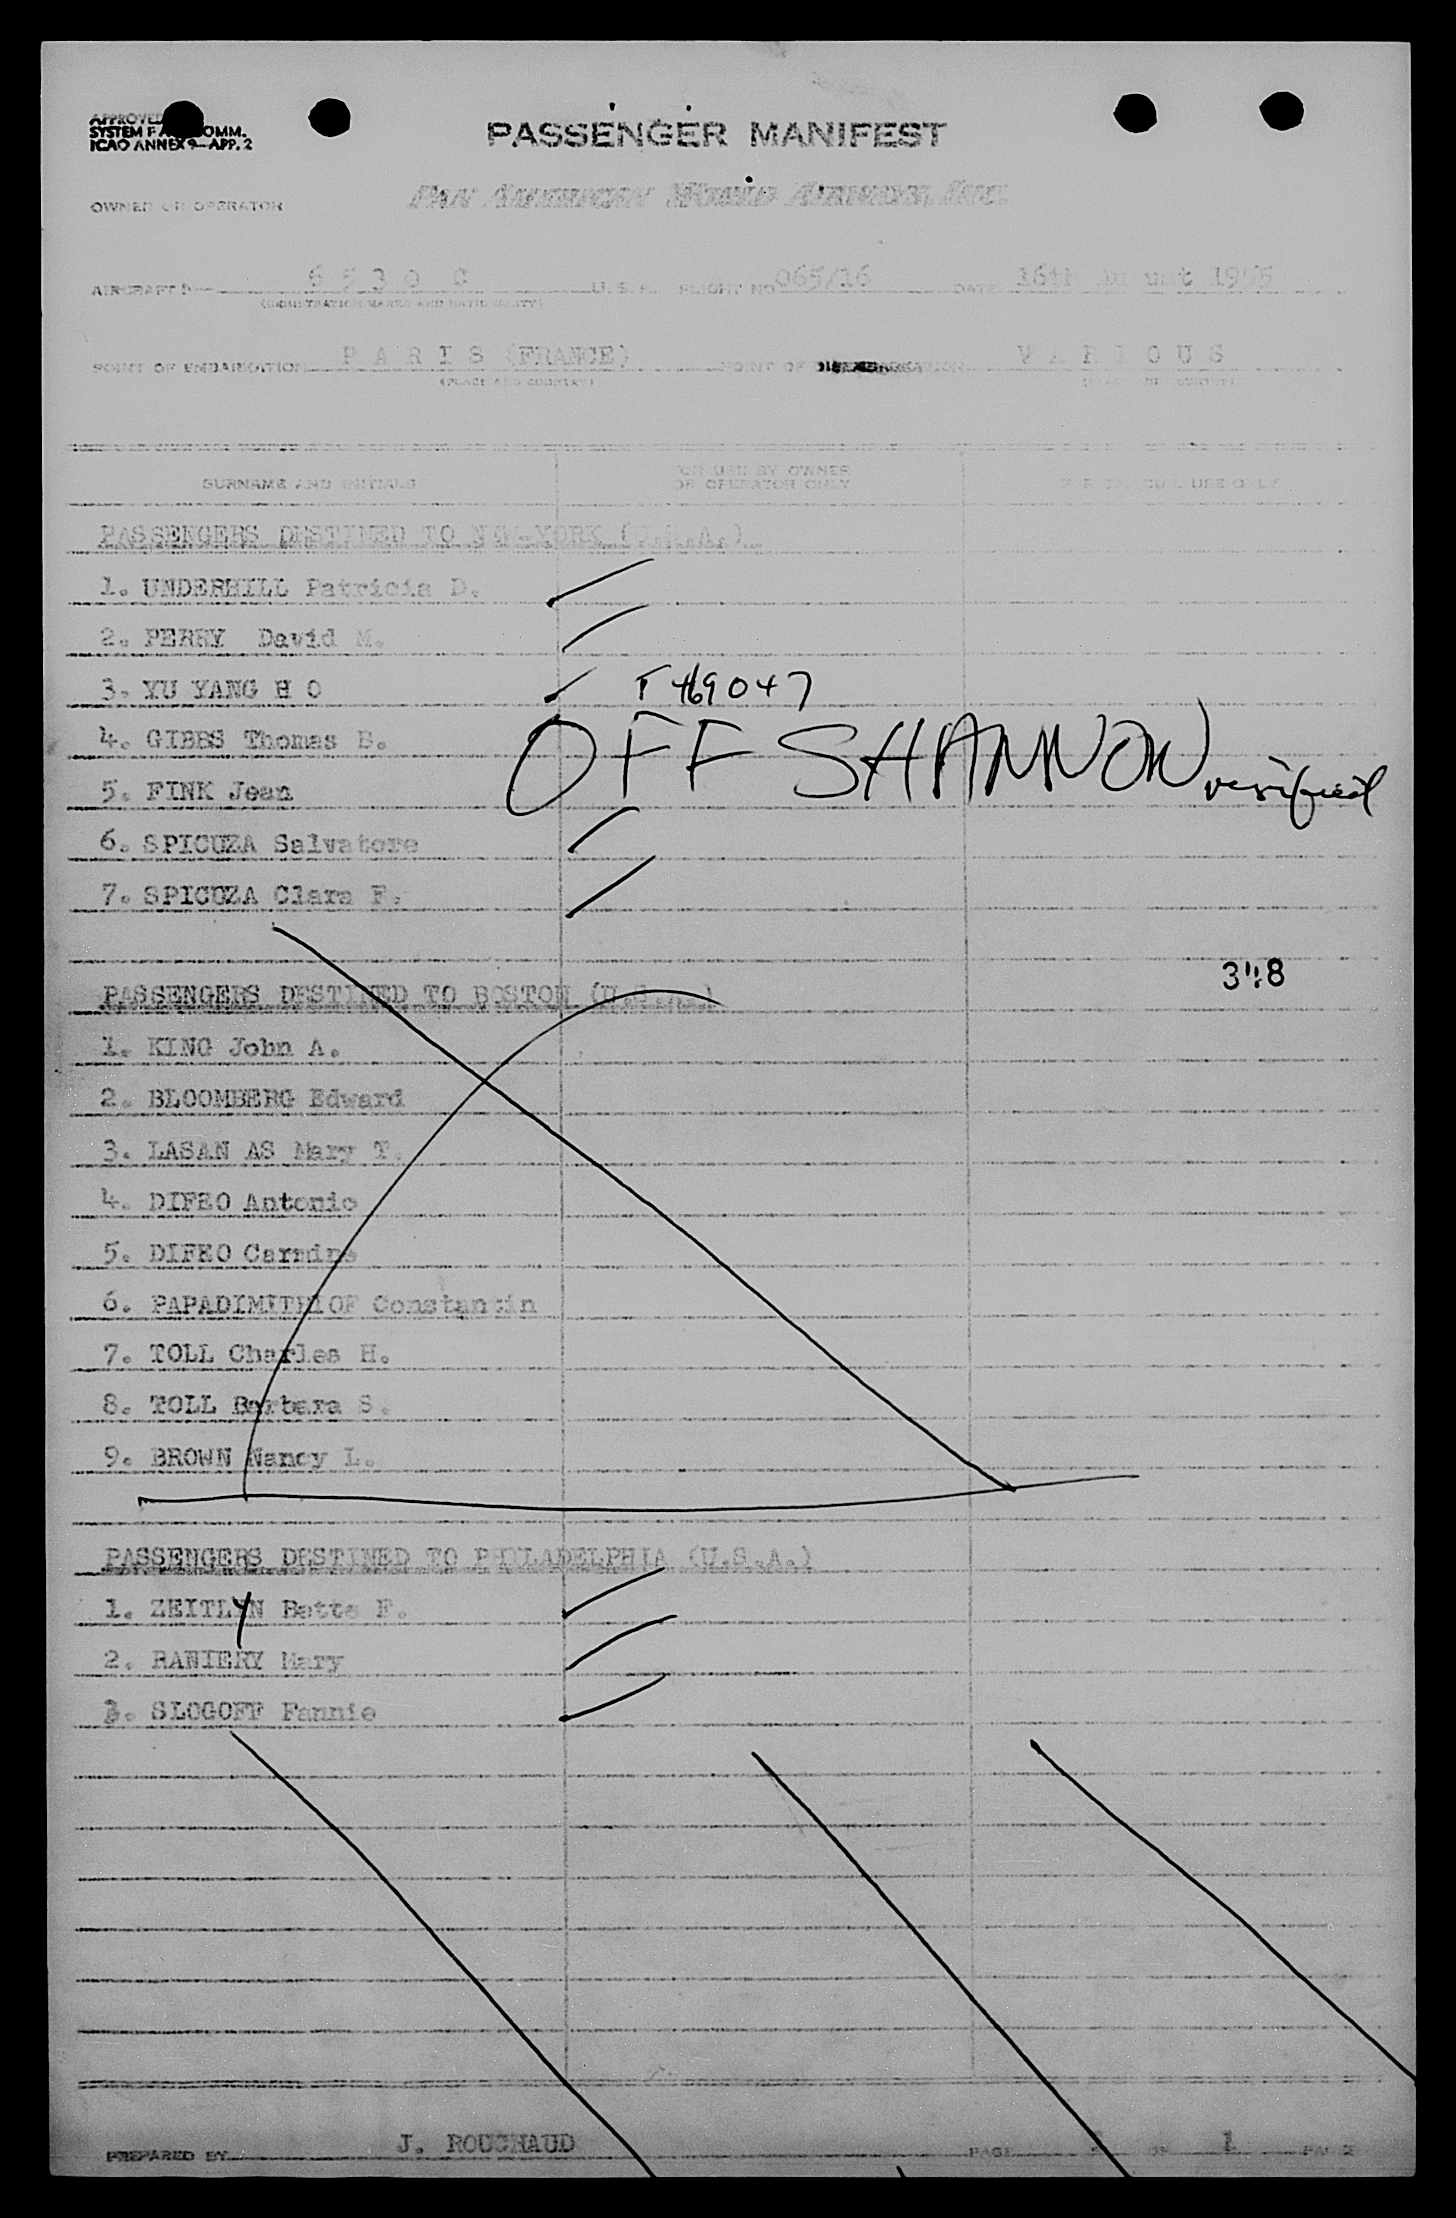 APPROVED
SYSTEM FAL COMM.
ICAO ANNEX 9—APP. 2
PASSENGER MANIFEST
OWNER OR OPERATOR PAN AMERICAN WORLD AIRWAYS, INC.
AIRCRAFT N 6530 C U.S.A. FLIGHT NO 065/16 DATE 16th August 1955
(REGISTRATION MARKS AND NATIONALITY)
POINT OF EMBARKATION P A R I S (FRANCE) POINT OF DISEMBARKATION V A R I O U S
(PLACE AND COUNTRY) (PLACE AND COUNTRY)
SURNAME AND INITIALS FOR USE BY OWNER OR OPERATOR ONLY FOR OFFICIAL USE ONLY
PASSENGERS DESTINED TO NEW-YORK (U.S.A.)
1. UNDERHILL Patricia D.
2. PERRY David M.
3. YU YANG H O
4. GIBBS Thomas B. OFF SHANNON verified
5. FINK Jean
6. SPICUZA Salvatore
7. SPICUZA Clara F.
PASSENGERS DESTINED TO BOSTON (U.S.A.)
1. KING John A.
2. BLOOMBERG Edward
3. LASAN AS Mary T.
4. DIFEO Antonio
5. DIFEO Carmine
6. PAPADIMITRIOF Constantin
7. TOLL Charles H.
8. TOLL Barbara S.
9. BROWN Nancy L.
PASSENGERS DESTINED TO PHILADELPHIA (U.S.A.)
1. ZEITLYN Bette F.
2. RANIERY Mary
3. SLOGOFF Fannie
PREPARED BY J. ROUCHAUD PAGE 1 OF 1 PAGE